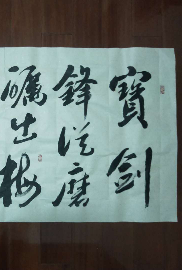 寶劍
鋒從磨
礪出梅